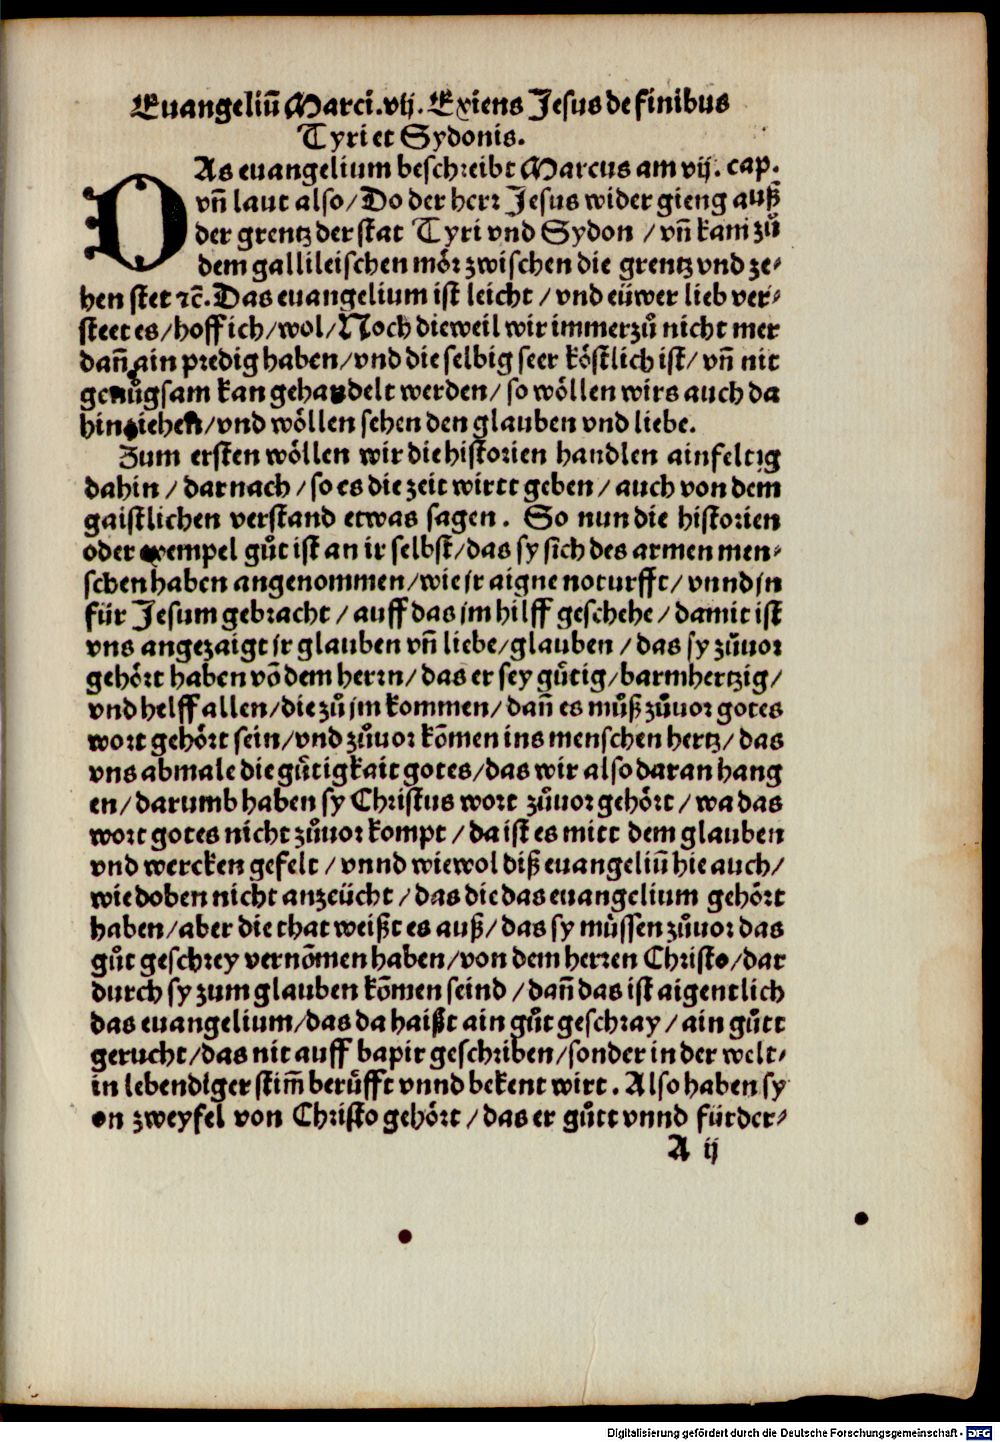 Euangeliū Marci. vij. Exiens Jesus de finibus
Tyri et Sydonis.
DAs euangelium beschreibt Marcus am vij. cap.
vñ laut also/ Do der herr Jesus wider gieng auß
der grentz der stat Tyri vnd Sydon / vñ kam zů
dem gallileischen mör zwischen die grentz vnd ze-
hen stet ꝛc̄. Das euangelium ist leicht / vnd eüwer lieb ver-
steet es/ hoff ich/ wol/ Noch dieweil wir immerzů nicht mer
dañ ain predig haben/ vnd die selbig seer köstlich ist/ vñ nit
genůgsam kan gehandelt werden/ so wöllen wirs auch da
hin ziehen/ vnd wöllen sehen den glauben vnd liebe.
Zum ersten wöllen wir die historien handlen ainfeltig
dahin / darnach / so es die zeit wirtt geben / auch von dem
gaistlichen verstand etwas sagen. So nun die historien
oder exempel gůt ist an ir selbst/ das sy sich des armen men-
schen haben angenommen/ wie jr aigne noturfft/ vnnd jn
für Jesum gebracht / auff das jm hilff geschehe / damit ist
vns angezaigt jr glauben vñ liebe/ glauben / das sy zůuor
gehört haben vō dem herrn/ das er sey gůtig/ barmhertzig/
vnd helff allen/ die zů jm kommen/ dañ es můß zůuor gotes
wort gehört sein/ vnd zůuor kōmen ins menschen hertz/ das
vns abmale die gůtigkait gotes/ das wir also daran hang
en/ darumb haben sy Christus wort zůuor gehört / wa das
wort gotes nicht zůuor kompt / da ist es mitt dem glauben
vnd wercken gefelt / vnnd wiewol diß euangeliū hie auch/
wie doben nicht anzeücht / das die das euangelium gehört
haben/ aber die that weißt es auß/ das sy müssen zůuor das
gůt geschrey vernōmen haben/ von dem herren Christo/ dar
durch sy zum glauben kōmen seind / dañ das ist aigentlich
das euangelium/ das da haißt ain gůt geschray / ain gůtt
gerucht/ das nit auff bapir geschriben/ sonder in der welt-
in lebendiger stim̄ berůfft vnnd bekent wirt. Also haben sy
on zweyfel von Christo gehört / das er gůtt vnnd fürder-
A ij
Digitalisierung gefördert durch die Deutsche Forschungsgemeinschaft - DFG